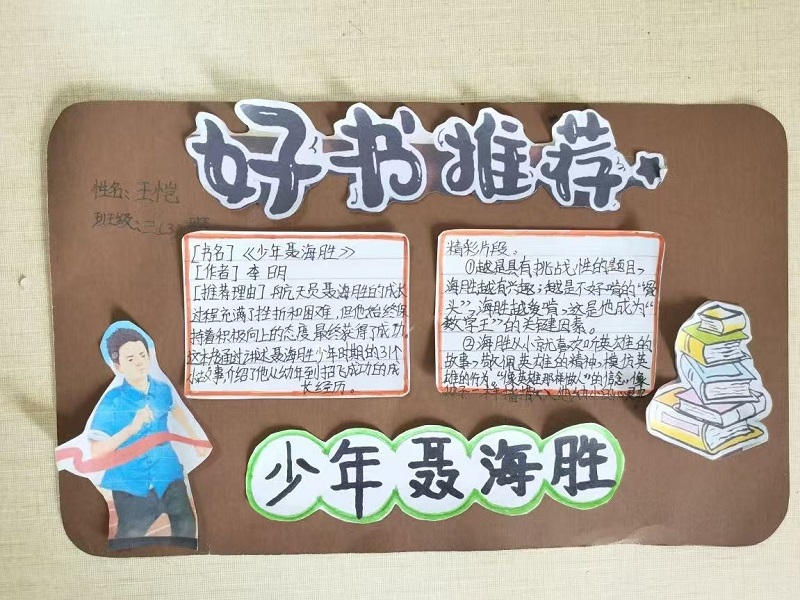 好书推荐
性名:王恺
班级:三(3)班
[书名]《少年聂海胜》
[作者]李明
[推荐理由]航亢天员聂海胜的成长
过程充满了挫折和困难,但他始终保
持着积极向上的态度最终获得了成功。
这本书通过讲述聂海胜少年时期的31个
小故事介绍了他从幼年到招飞成功的成
长经历。
精彩片段。
①越是具有挑战性的题目,
海胜越有兴趣;越是不好啃的“骨
头”,海胜越爱啃,这是他成为“
数学王”的关键因素。
②海胜从小就尤喜欢听英雄的
故事,敬佩英雄的精神,模仿英
雄的行为。“像英雄那样做人”的信念,像
少年聂海胜